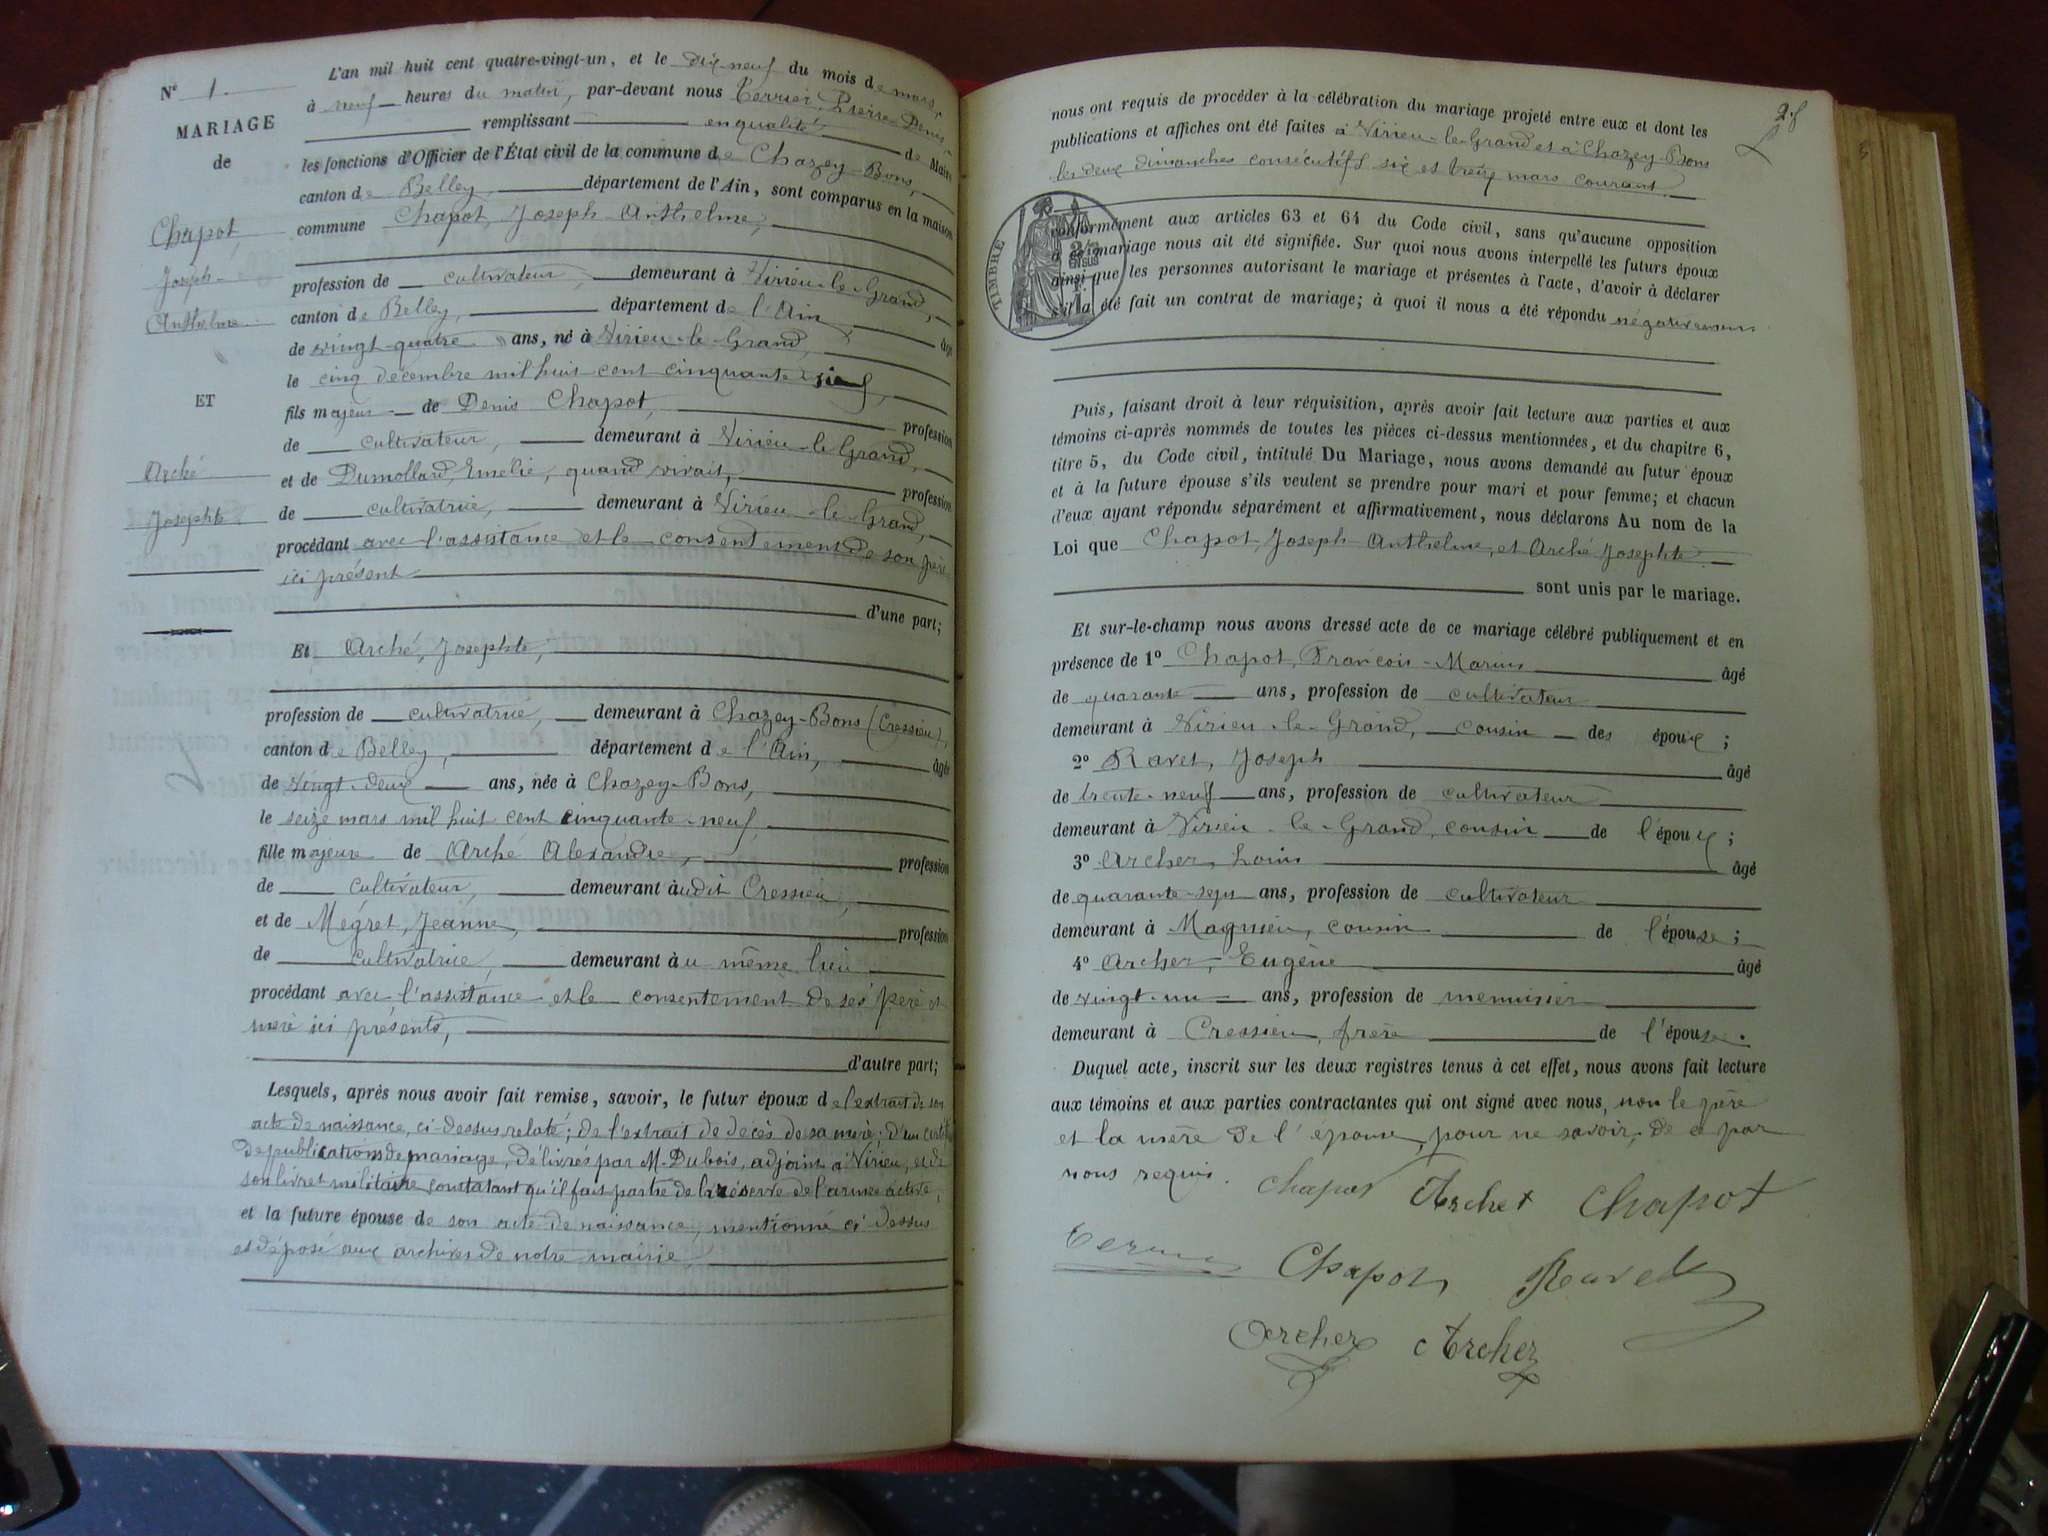 Nº 1.
MARIAGE
de
Chapot
Joseph-
Anthelme
ET
Arché
Josephte
L'an mil huit cent quatre-vingt-un, et le dix-neuf du mois de mars,
à neuf heures du matin, par-devant nous Terrier Pierre-Denis
remplissant en qualité de Maire
les fonctions d'Officier de l'État civil de la commune de Chazey-Bons,
canton de Belley, département de l'Ain, sont comparus en la maison
commune Chapot, Joseph-Anthelme,
profession de cultivateur, demeurant à Virieu-le-Grand,
canton de Belley, département de l'Ain, âgé
de vingt-quatre ans, né à Virieu-le-Grand,
le cinq décembre mil huit cent cinquante
fils majeur de Denis Chapot, profession
de cultivateur, demeurant à Virieu-le-Grand,
et de Dumollard, Emelie, quand vivait, profession
de cultivatrice, demeurant à Virieu-le-Grand,
procédant avec l'assistance et le consentement de son père
ici présent
d'une part;
Et Arché, Josephte,
profession de cultivatrice, demeurant à Chazey-Bons (Cressieu),
canton de Belley, département de l'Ain, âgée
de vingt-deux ans, née à Chazey-Bons,
le seize mars mil huit cent cinquante-neuf,
fille majeure de Arché Alexandre, profession
de cultivateur, demeurant àudit Cressieu,
et de Mégret, Jeanne, profession
de cultivatrice, demeurant àu même lieu
procédant avec l'assistance et le consentement de ses père et
mère ici présents,
d'autre part;
Lesquels, après nous avoir fait remise, savoir, le futur époux de l'extrait de son
acte de naissance, ci-dessus relaté; de l'extrait de décès de sa mère; d'un certificat
de publications de mariage, délivrés par M. Dubois, adjoint à Virieu, et de
son livret militaire constatant qu'il fait partie de la réserve de l'armée active,
et la future épouse de son acte de naissance, mentionné ci-dessus
et déposé aux archives de notre mairie,
28
nous ont requis de procéder à la célébration du mariage projeté entre eux et dont les
publications et affiches ont été faites à Virieu-le-Grand et à Chazey-Bons
les deux dimanches consécutifs six et treize mars courant
TIMBRE
conformément aux articles 63 et 64 du Code civil, sans qu'aucune opposition
à ce mariage nous ait été signifiée. Sur quoi nous avons interpellé les futurs époux
ainsi que les personnes autorisant le mariage et présentes à l'acte, d'avoir à déclarer
s'il a été fait un contrat de mariage; à quoi il nous a été répondu négativement
Puis, faisant droit à leur réquisition, après avoir fait lecture aux parties et aux
témoins ci-après nommés de toutes les pièces ci-dessus mentionnées, et du chapitre 6,
titre 5, du Code civil, intitulé Du Mariage, nous avons demandé au futur époux
et à la future épouse s'ils veulent se prendre pour mari et pour femme; et chacun
d'eux ayant répondu séparément et affirmativement, nous déclarons Au nom de la
Loi que Chapot, Joseph-Anthelme, et Arché Josephte
sont unis par le mariage.
Et sur-le-champ nous avons dressé acte de ce mariage célébré publiquement et en
présence de 1º Chapot, François-Marius âgé
de quarante ans, profession de cultivateur
demeurant à Virieu-le-Grand, cousin des époux;
2º Ravet, Joseph âgé
de trente-neuf ans, profession de cultivateur
demeurant à Virieu-le-Grand, cousin de l'époux;
3º Archer, Louis âgé
de quarante-sept ans, profession de cultivateur
demeurant à Magnieu, cousin de l'épouse;
4º Archer, Eugène âgé
de vingt-un ans, profession de menuisier
demeurant à Cressieu, frère de l'épouse.
Duquel acte, inscrit sur les deux registres tenus à cet effet, nous avons fait lecture
aux témoins et aux parties contractantes qui ont signé avec nous, non le père
et la mère de l'épouse, pour ne savoir, de ce par
nous requis.
Chapot Archet Chapot
Chapot Ravet
Archer Archer